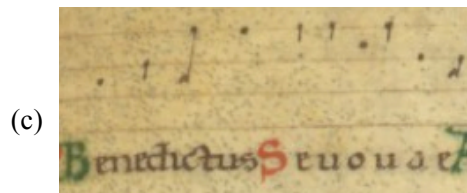 (c)
BenedictusSeuouaeA